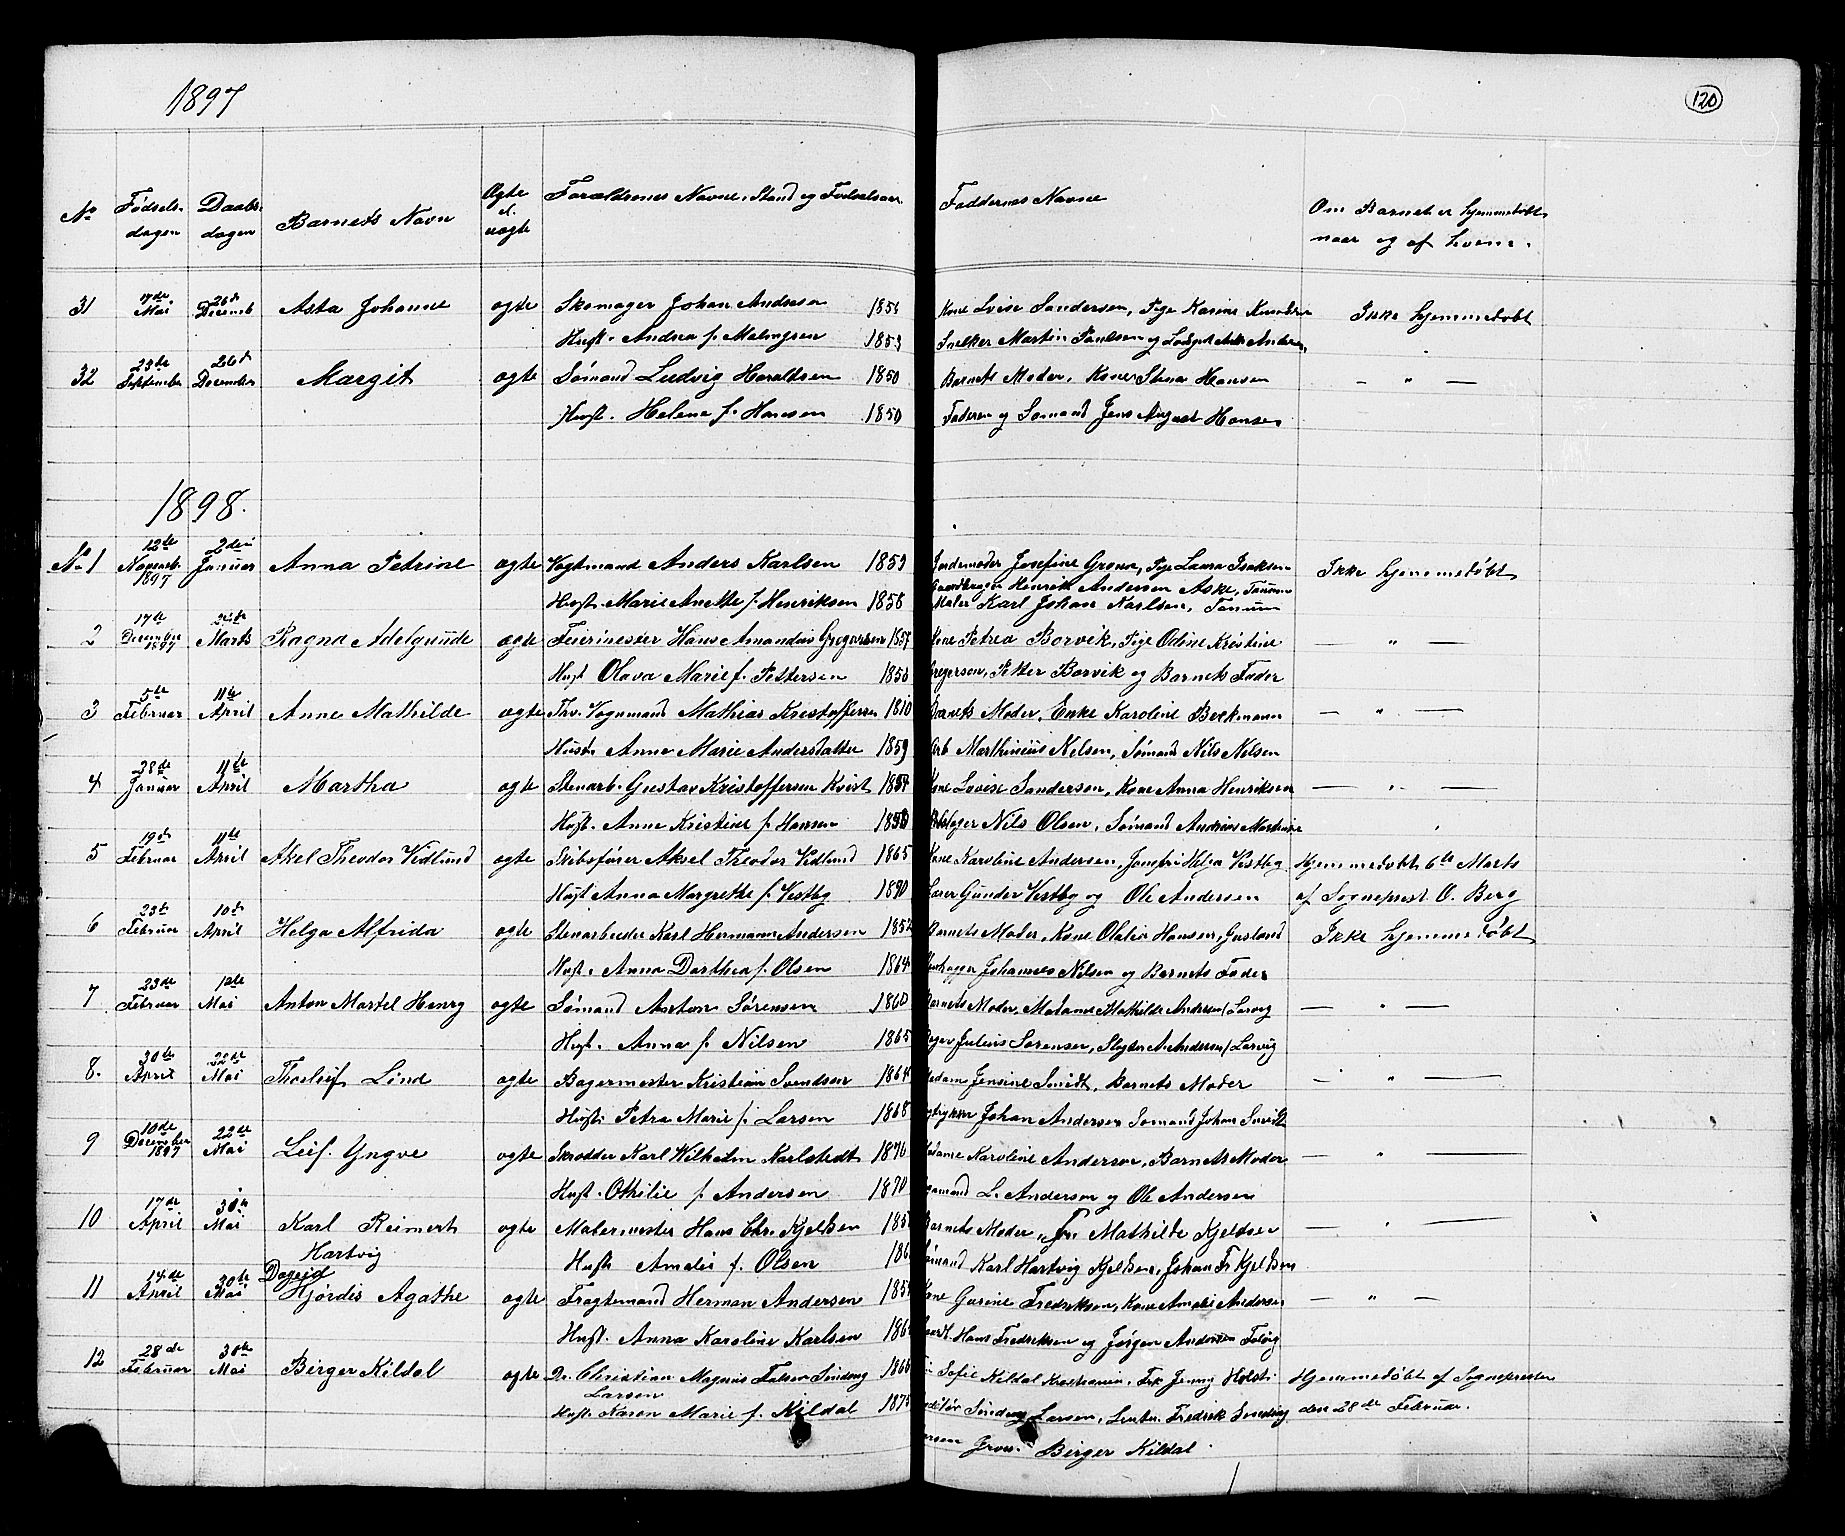 1897
120
No Fødsels- dagen Daabs- dagen Barnets Navn Ægte el. uægte Forældrenes Navne, Stand og Fødselsaar Faddernes Navne Om Barnet er hjemmedøbt naar og af hvem.
31 17de Mai 26de Decemb Asta Johanne ægte Skomager Johan Andresen Kone Lovise Sandersen, Pige Karine Ikke hjemmedøbt
Hust. Andrea f. Malmgren 1853 Snekker Martin Paulsen og
32 23de September 26de December Margit ægte Sømand Ludvig Haraldsen 1850 Barnets Moder, Kone Stina Hansen — " —
Hust. Helene f. Hansen 1850 Faderen og Sømand Jens August Hansen
1898.
No 1 12te Novemb. 1897 2den Januar Anna Petrine ægte Vogtmand Anders Karlsen 1853 Jordemoder Josefine Grorud, Pige Laura Isaksen Ikke hjemmedøbt
Gaardbruger Henrik Andersen Aske, Tanum
Hust. Marie Anette f. Henriksen 1858 Maler Karl Johan Karlsen, Tanum
2 17de December 1897 Marts Ragna Adelgunde ægte Feierinester Hans Amandus Gregersen 1857 Kone Petrea Borvik, Pige Odine Kristine — " —
Hust Olava Marie f. Pettersen 1856 Gregersen, Petter Borvik og Barnets Fader
3 5te Februar 11te April Anne Mathilde ægte Vognmand Mathias Kristoffersen Barnets Moder, Enke Karoline Beckmann — " —
Hustr. Anne Marie Andersdatter 1859 Arb Marthinius Nelsen, Sømand Nils Nelsen
4 28de Januar 11te April Martha ægte Stenarb. Gustav Kristoffersen Kvist Kone Lovise Sandersen, Kone Anna Henriksen — " —
Hust. Anne Kristine f. Hansen Nils Olsen, Sømand Andreas
5 19de Februar 11te April Aksel Theodor Vidlund ægte Skibsfører Aksel Theodor Vidlund 1865 Kone Karoline Andersen, Jomfru Helga Vestby Hjemmedøbt 6te Marts
Hust Anna Margrethe f. Vestby 1870 Gunder Vestby og Ole Andersen af Sogneprest O. Berg
6 23de Februar 10de April Helga Alfrida ægte Stenarbeider Karl Hermann Andersen 1852 Barnets Moder, Kone Olalia Hansen, Gusland Ikke hjemmedøbt
Hust. Anna Dorthea f. Olsen 1864 Stenhugger Johannes Nilsen og Barnets Fader
7 23de Februar Mai Anton Martel Henry ægte Sømand Anton Sørensen 1860 Barnets Moder, Madame Mathilde Andersen, Larvig — " —
Hust. Anna f. Nilsen 1865 Julius Sørensen, A. Andersen, Larvig
8. 30te April 22de Mai Thorleif Lind ægte Bagermester Kristian Svendsen 1864 Madam Jensine Smidt, Barnets Moder — " —
Hust. Petra Marie f. Larsen 1868 Johan Andersen Sømand Johan Smidt
9 10de December 1897 22de Mai Leif Yngve ægte Skrædder Karl Wilhelm Karlstedt 1876 Madame Karoline Andersen, Barnets Moder — " —
Hust. Othilie f. Andersen 1870 L. Andersen og Ole Andersen
10 17de April 30te Mai Karl Reinert ægte Malermester Hans Chr. Kjeldsen 185 Barnets Moder, Frk. Mathilde Kjeldsen — " —
Hartvig Hust. Amalie f. Olsen 186 Sømand Karl Hartvig Kjeldsen, Johan Fr Kjeldsen
Dagrid
11 14de April 30te Mai Hjørdis Agathe ægte Fragtemand Herman Andersen 185 Kone Gurine Fredriksen, Kone Amalie Andersen — " —
Hust. Anna Karoline Karlsen 186 Hans Fredriksen og Jørgen Andersen
12 28de Februar 30te Mai Birger Kildal ægte Dr. Christian Magnus Falsen Sinding 1866 Sofie Kildal Kristiania, Frk Jenny Holst Hjemmedøbt af Sognepresten
Larsen
Hust. Karen Marie f. Kildal 187 Sinding Larsen, Fredrik Sinding den 28de Februar.
Larsen Birger Kildal.